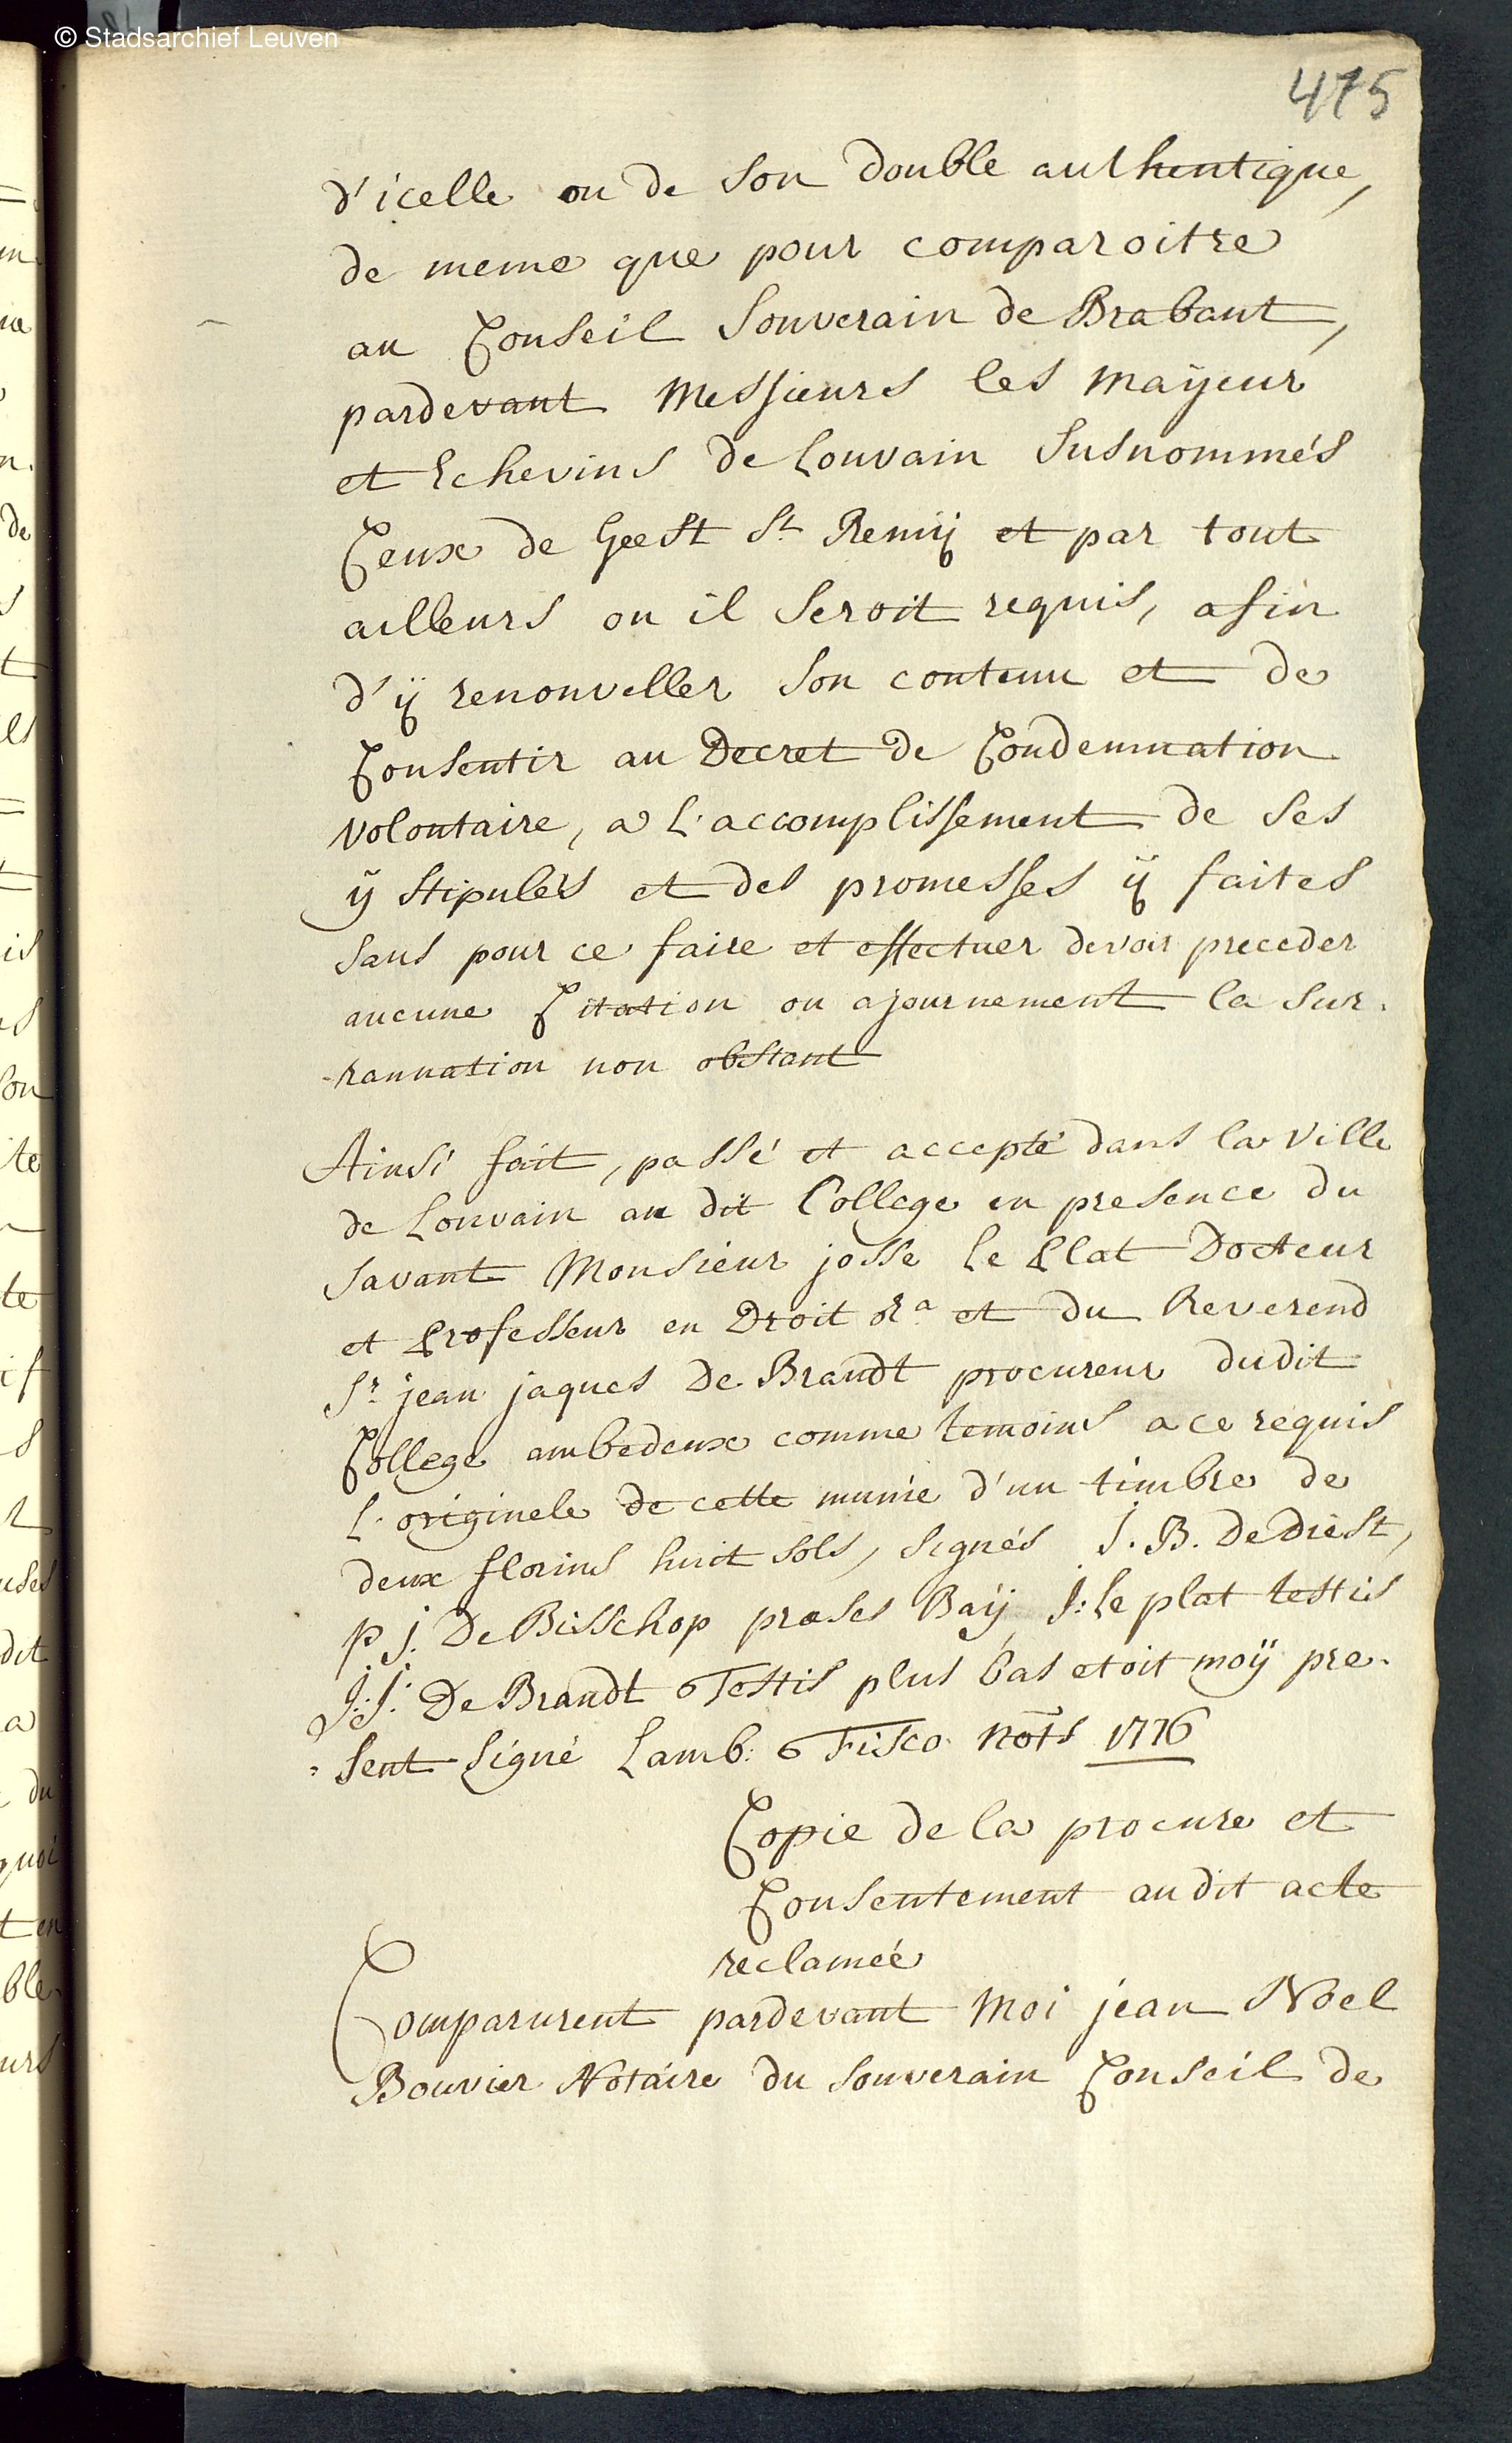 © Stadsarchief Leuven
475
d'icelle ou de son double authentique,
de meme que pour comparoitre
au Conseil Souverain de Brabant,
pardevant Messieurs les Maÿeur
et Echevins de Louvain Susnommés
Ceux de Geest St Remÿ et par tout
ailleurs ou il Seroit requis, afin
d'ÿ renouveller son contenu et de
Consentir au Decret de Condemnation
volontaire, a l'accomplissement de ses
ÿ Stipulés et des promesses ÿ faites
sans pour ce faire et effectuer devoir preceder
aucune Citation ou ajournement la Sur-
-rannation non obstant
Ainsi fait, passé et accepté dans la Ville
de Louvain au dit College en presence du
Savant Monsieur josse le Plat Docteur
et Professeur en Droit &ra et du Reverend
Sr jean jaques De Brandt procureur dudit
College ambedeux comme temoins a ce requis
l'originele de cette munie d'un timbre de
deux florins huit sols, signés J. B. De Driest,
p j. De Bisschop præses Baÿ, J: le plat testis
J: J: De Brandt Testis plus bas etoit moÿ pre-
-sent Signé Lamb: Fisco Nots 1776
Copie de la procure et
Consentement audit acte
reclamée
Comparurent pardevant Moi jean Noel
Bouvier Notaire du Souverain Conseil de